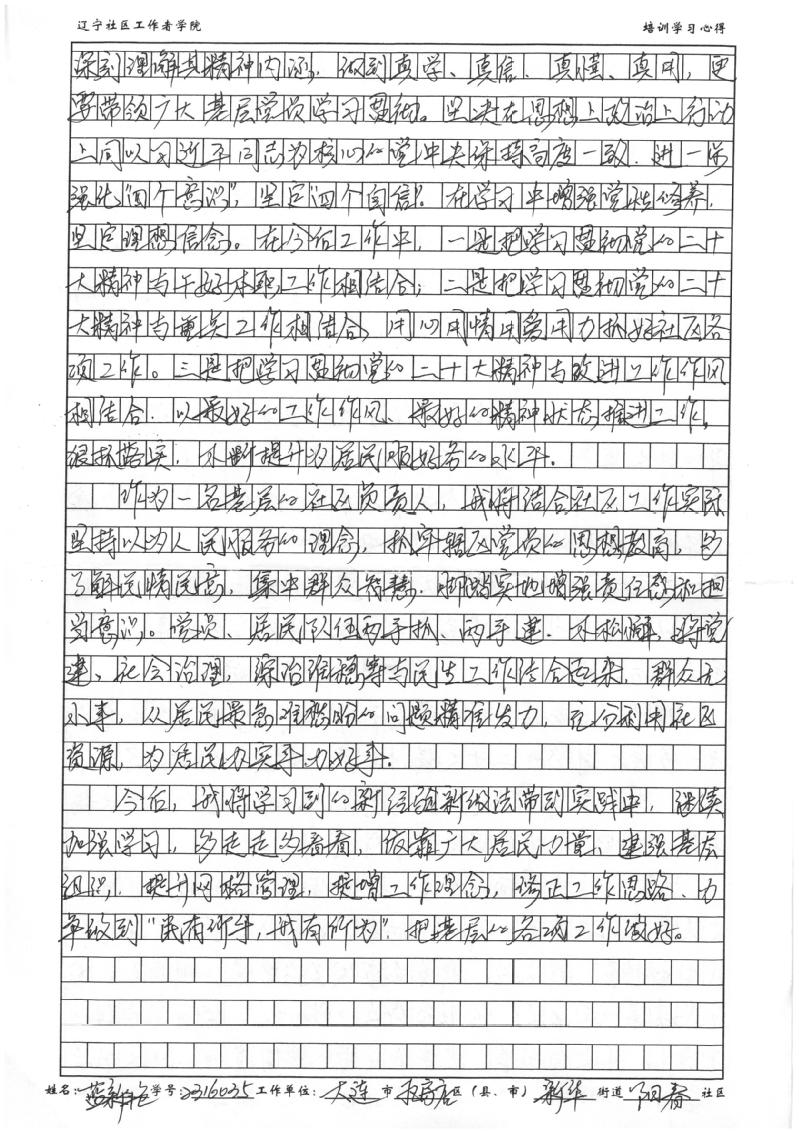 辽宁社区工作者学院 培训学习心得
深刻理解其精神内涵，做到真学、真信、真懂、真用，更
要带领广大基层党员学习贯彻。坚决在思想上政治上行动
上同以习近平同志为核心的党中央保持高度一致，进一步
强化"四个意识"，坚定"四个自信"。在学习中增强党性修养，
坚定理想信念。在今后工作中，一是把学习贯彻党的二十
大精神与干好本职工作相结合；二是把学习贯彻党的二十
大精神与重点工作相结合，用心用情用爱用力抓好社区各
项工作。三是把学习贯彻党的二十大精神与改进工作作风
相结合，以最好的工作作风、最好的精神状态推进工作，
狠抓落实，不断提升为居民服务的水平。
作为一名基层的社区负责人，我将结合社区工作实际
坚持以为人民服务的理念，抓牢辖区党员的思想教育，多
了解民情民意，集中群众智慧，脚踏实地增强责任感和担
当意识。党员、居民队伍两手抓、两手建，不松懈，将党
建、社会治理，综治维稳等与民生工作结合起来，群众无
小事，从居民最急难愁盼的问题精准发力，充分利用社区
资源，为居民办实事办好事。
今后，我将学习到的新经验新做法带到实践中，继续
加强学习，多走走多看看，依靠广大居民力量，建强基层
组织，提升网格管理，提增工作理念，端正工作思路，力
争做到"民有所呼，我有所为"，把基层的各项工作做好。
姓名： 学号：2316035 工作单位：大连市瓦房店区（县、市）新华街道阳春社区